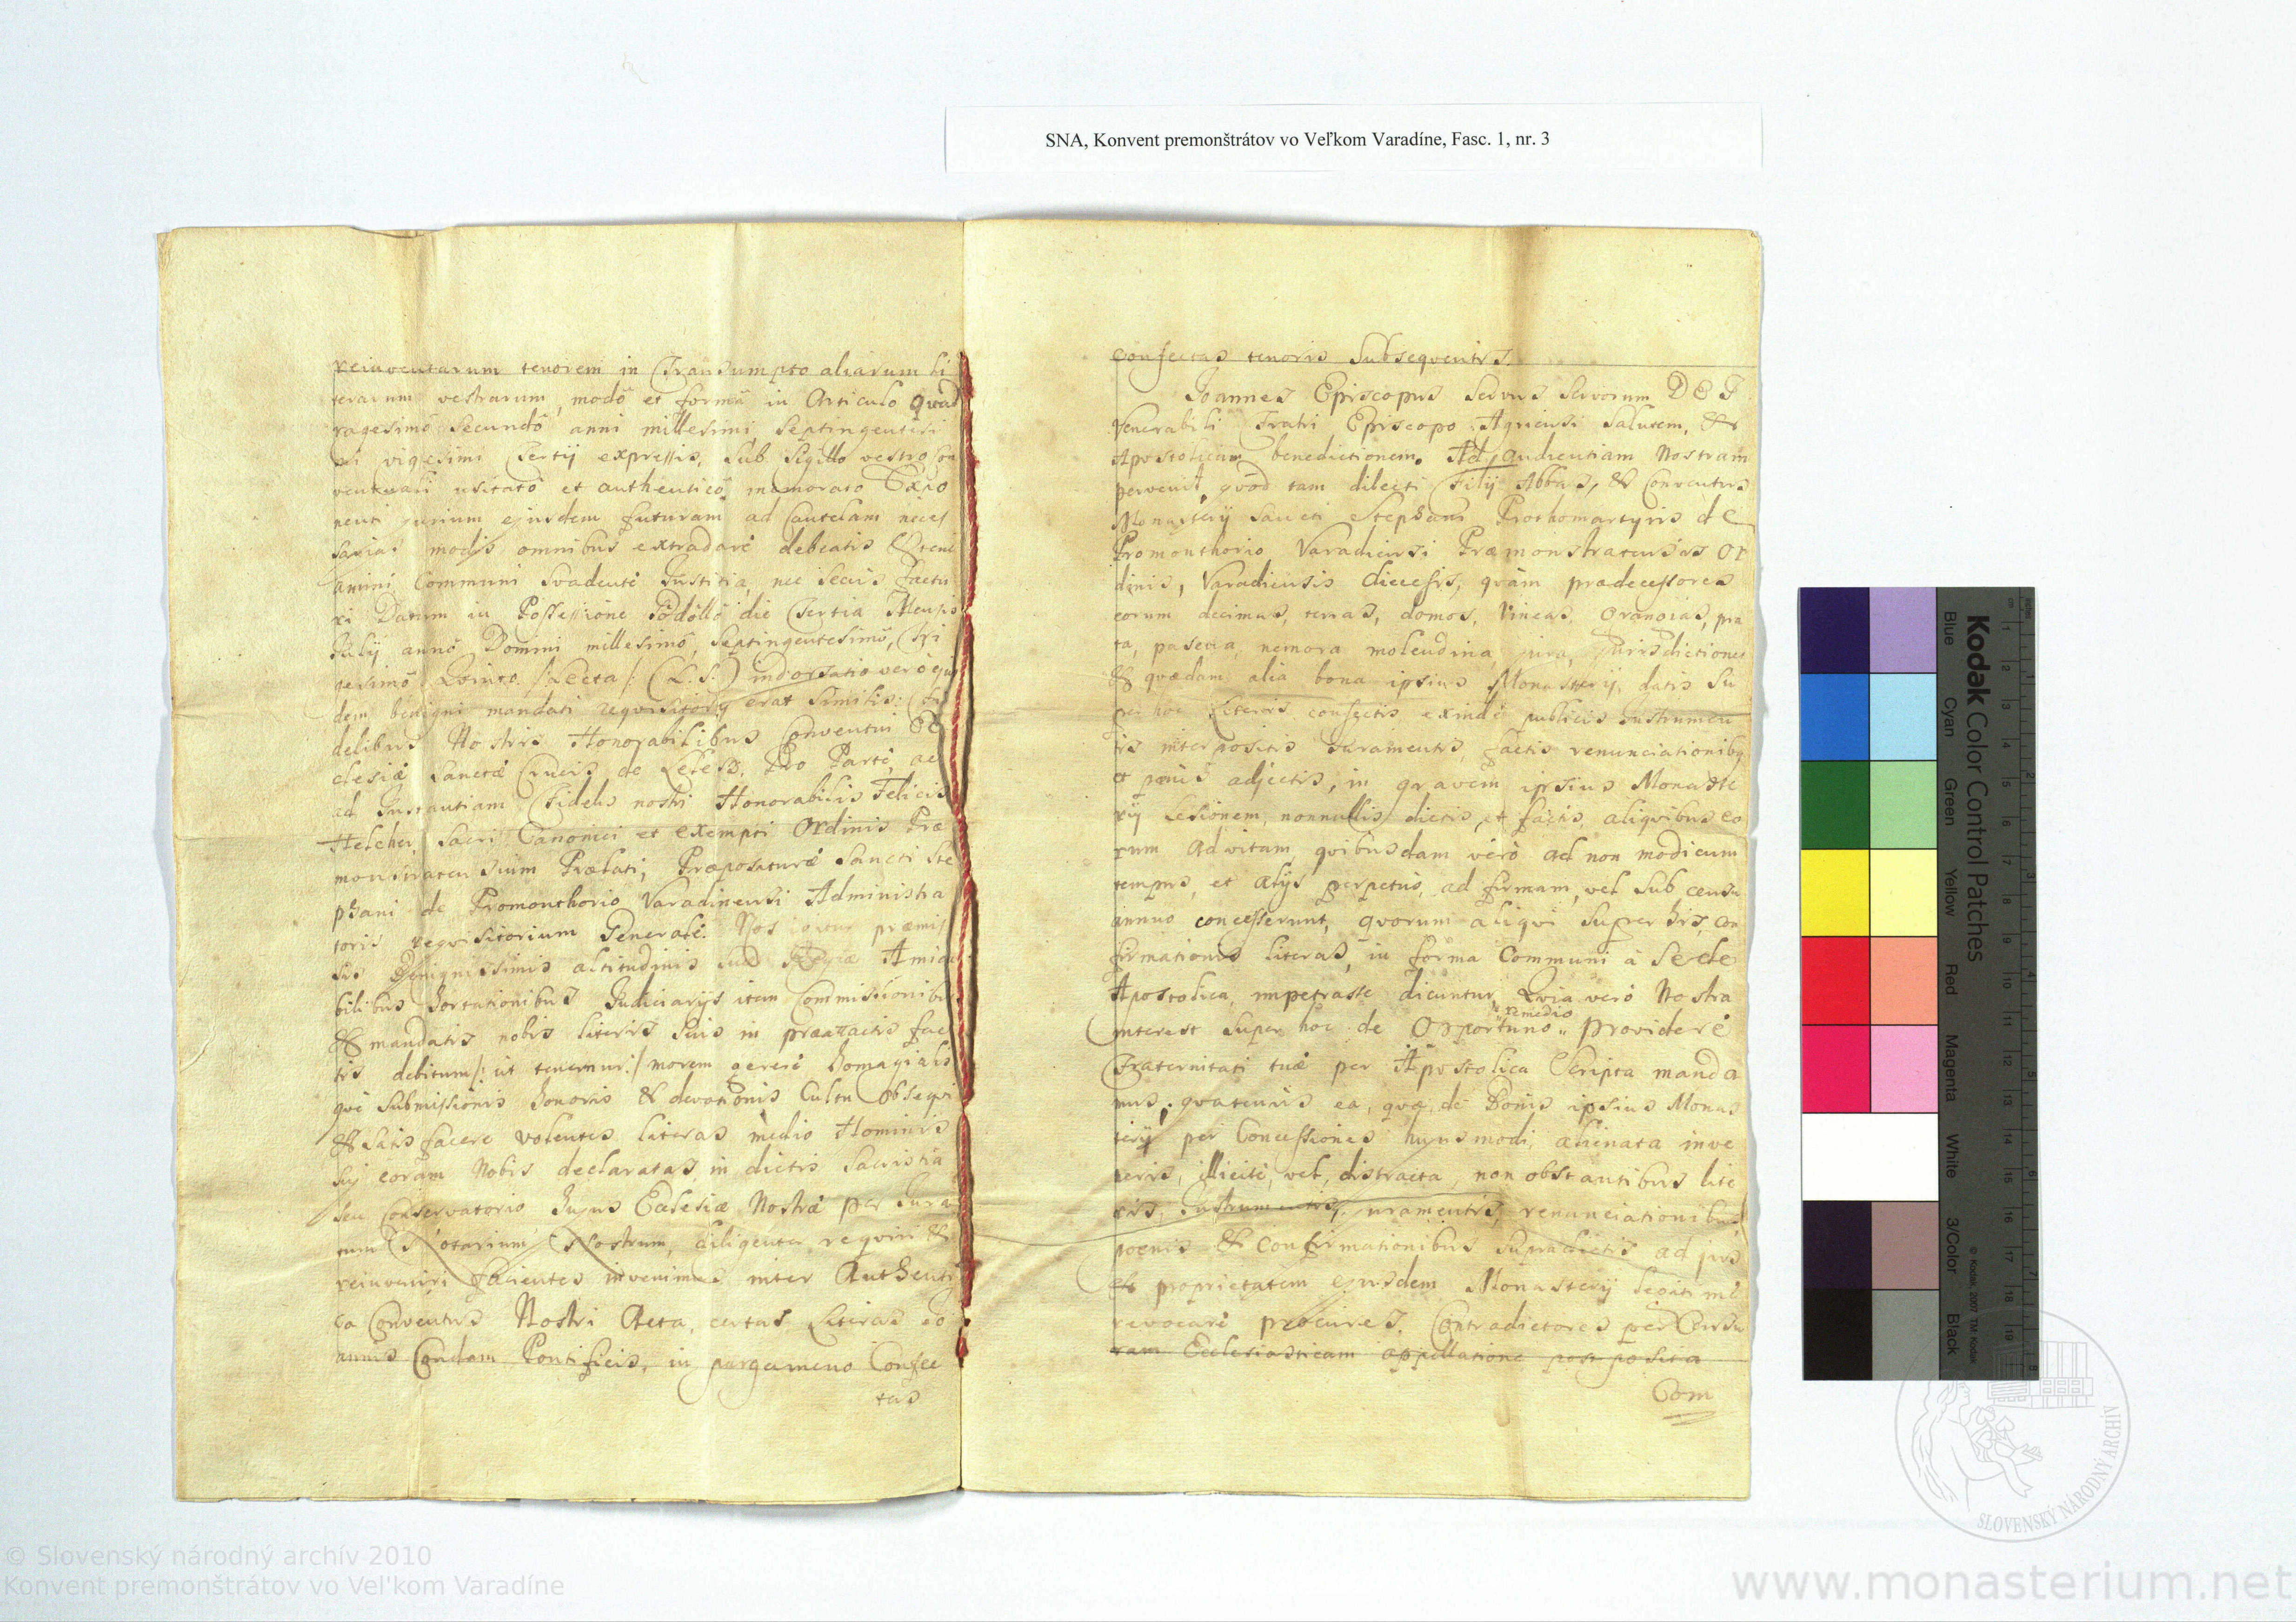 SNA, Konvent premonštrátov vo Veľkom Varadíne, Fasc. 1, nr. 3
reinventarum tenorem in Transumpto aliarum li
terarum vestrarum, modô et formâ in Articulo Quad
ragesimô Secundô anni millesimi Septingentesi
mi vigesimi Tertij expressis, sub Sigillo vestro Con
ventuali usitatô et authenticô memorato Expo
nenti jurium ejusdem futuram ad Cautelam neces
sarias modis omnibus extradare debeatis & tene
amini Communi Svadente Justitia, nec secus factu
ri Datum in Possessione Södöllö die Tertia Mensis
Julij annô Domini millesimô, Septingentesimô, Tri
gesimô Qvinto. /:Lecta:/ (L.S.) indorsatio verò ejus
dem benigni mandati reqvisitorij erat similis: Fi
delibus Nostris Honorabilibus Conventui Ec
clesiæ Sanctæ Crucis de Lelesz. Pro Parte, ac
ad Instantiam Fidelis nostri Honorabilis Felicis
Helcher, Sacri Canonici et exempti Ordinis Præ
monstratensium Prælati, Præposituræ Sancti Ste
phani de Promonthorio Varadinensi Administra
toris reqvisitorium Generale. Nos igitur præmis
sis Benignissimis altitudinis suæ Regiæ Amica
bilibus hortationibus Judiciarijs item Commissionibus
& mandatis nobis literis suis in præattactis fac
tis debitum /:ut tenemur:/ morem gerere homagialis
qve submissionis honoris & devotionis Cultu Obseqvi
& Satisfacere volentes literas medio Hominis
sui coram Nobis declaratas in dictis Sacristia
seu Conservatorio hujus Ecclesiæ Nostræ per Jura
tum Notarium Nostrum, diligenter reqviri &
reinveniri facientes invenimus inter Authenti
ca Conventus Nostri Acta, certas Literas Jo
annis Condam Pontificis, in pargameno Confec
tas
confectas tenoris Subseqventis.
Joannes Episcopus Servus Servorum DEI
Venerabili Fratri Episcopo Agriensi Salutem, &
Apostolicam benedictionem. Ad audientiam Nostram
pervenit, qvod tam dilecti Filij Abbas, & Conventus
Monasterij Sancti Stephani Prothomartyris de
Promonthorio Varadiensi Præmonstratensis Or
dinis, Varadiensis diecesis, qvàm prædecessores
eorum decimas, terras, domos, Vineas, Grangias, pra
ta, pascua, nemora molendina, jura, Jurisdictiones
& qvædam alia bona ipsius Monasterij, datis su
per hoc Literis confectis exinde publicis Instrumen
tis interpositis Juramentis, factis renunciationibus
et pœnis adjectis, in gravem ipsius Monaste
rij Lesionem nonnullis dictis, et factis, aliqvibus eo
rum ad vitam qvibusdam verò ad non modicum
tempus, et alijs perpetuò, ad firmam, vel sub censu
annuo concesserunt, qvorum aliqvi super his, con
firmationis literas, in forma Communi à Sede
Apostolica, impetrasse dicuntur, Qvia verò Nostra
interest super hoc de Opportuno remedio providere
Fraternitati tuæ per Apostolica Scripta manda
mus; qvatenus ea, qvæ, de Bonis ipsius Monas
terij per Concessiones hujusmodi alienata inve
neris, illicite, vel, distracta, non obstantibus lite
ris, Instrumentis, juramentis, renunciationibus
poenis & Confirmationibus supradictis ad jus
& proprietatem ejusdem Monasterij legitime
revocare procures. Contradictores per Censu
ram Ecclesiasticam appellatione post posita
Com
Kodak Color Control Patches
Blue Cyan Green Yellow Red Magenta White 3/Color Black
© Kodak, 2007 TM: Kodak
SLOVENSKÝ NÁRODNÝ ARCHÍV
© Slovenský národný archív 2010
Konvent premonštrátov vo Veľkom Varadíne
www.monasterium.net